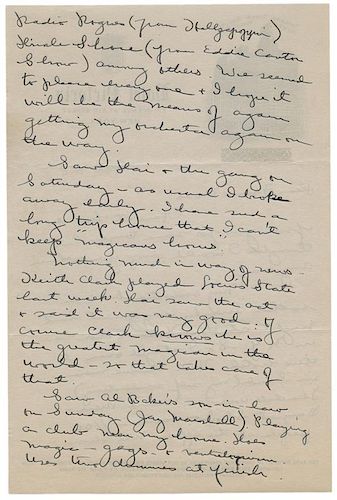 Radio Rogues (from Hellzapoppin)
Dinah Shore (from Eddie Cantor
Show) among others. We seemed
to please every one & I hope it
will be the means of again
getting my orchestra again on
the way.
Saw Stai & the gang on
Saturday - as usual I broke
away early. I have such a
long trip home that I can't
keep "magicians hours".
Nothing much in way of news -
Keith Clark played Loews State
last week. Stai saw the act
& said it was very good. Of
course Clark knows he is
the greatest magician in the
world - so that takes care of
that.
Saw Al Baker's son-in-law
on Sunday (Jay Marshall) Playing
a club near my home. Does
magic - gags - & ventriloquism
Uses two dummies at finish.